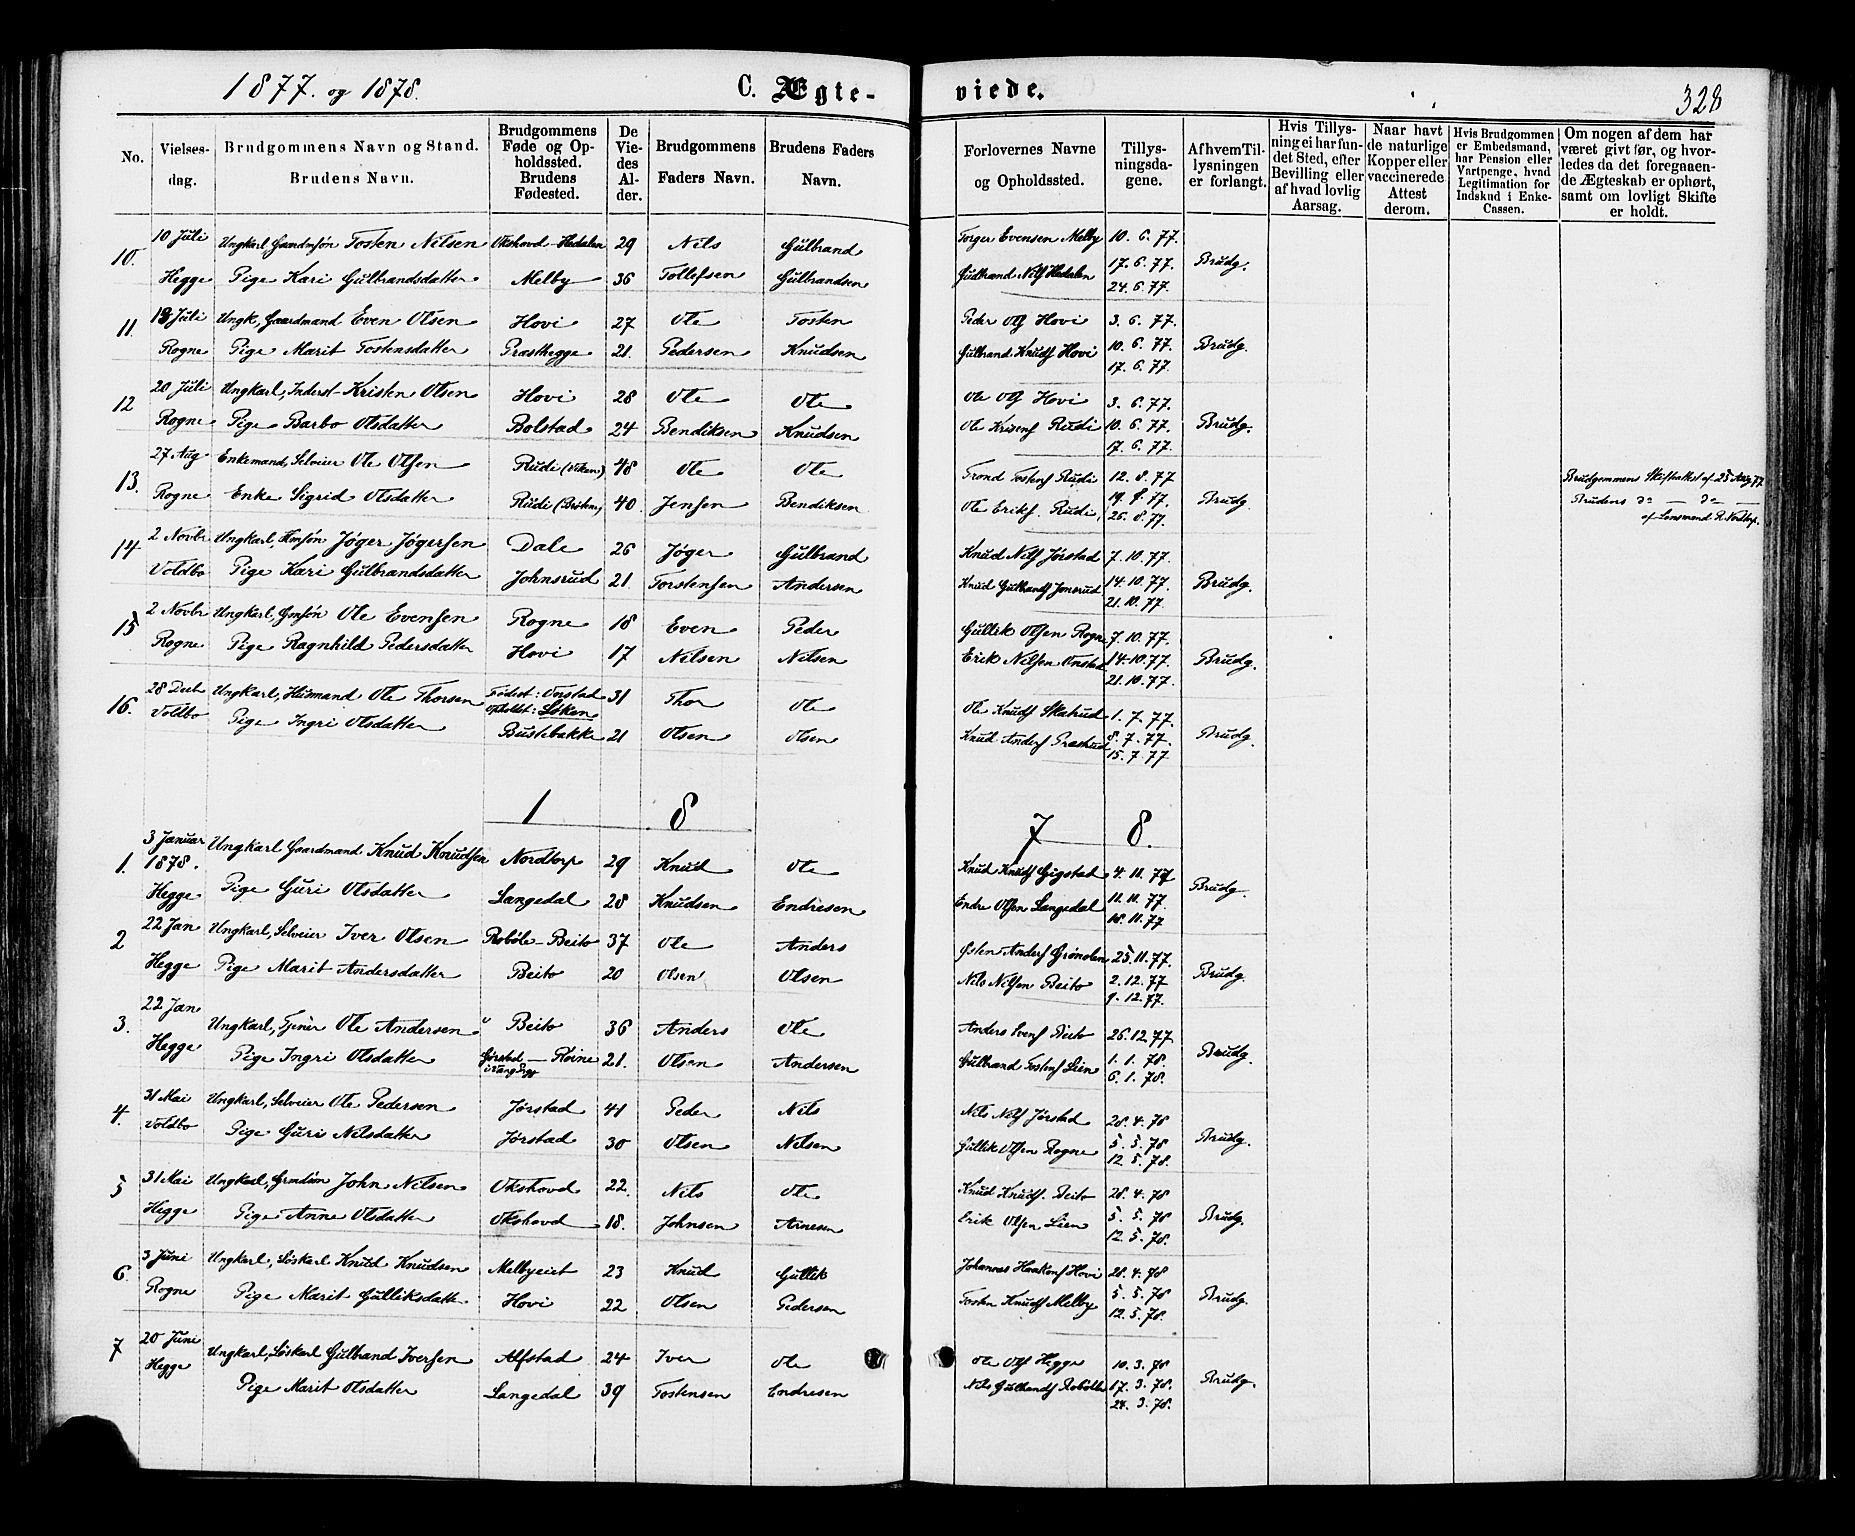 1877. og 1878.
C. Ægte-
viede.
328
No.
Vielses-
dag.
Brudgommens Navn og Stand.
Brudens Navn.
Brudgommens
Føde og Op-
holdssted.
Brudens
Fødested.
De
Vie-
des
Al-
der.
Brudgommens
Faders Navn.
Brudens Faders
Navn.
Forlovernes Navne
og Opholdssted.
Tillys-
ningsda-
gene.
Af hvem Til-
lysningen
er forlangt.
Hvis Tillys-
ning ei har fun-
det Sted, efter
Bevilling eller
af hvad lovlig
Aarsag.
Naar havt
de naturlige
Kopper eller
vaccinerede
Attest
derom.
Hvis Brudgommen
er Embedsmand,
har Pension eller
Vartpenge, hvad
Legitimation for
Indskud i Enke-
Cassen.
Om nogen af dem har
været givt før, og hvor-
ledes da det foregaaen-
de Ægteskab er ophørt,
samt om lovligt Skifte
er holdt.
10. 10 Juli Ungkarl Gaardmsøn Tosten Nilsen Okshovd-Hedalen 29 Nils Gulbrand Torger Evensen Melby 10. 6. 77.
Hegge Pige Kari Gulbrandsdatter Melby 36 Tollefsen Gulbrandsen Gudbrand Nilss Hedalen 17. 6. 77. Brudg.
24. 6. 77.
11. Juli Ungk, Gaardmand Even Olsen Hovi 27 Ole Tosten Peder Ols Hovi 3. 6. 77.
Rogne Pige Marit Tostensdatter Præsthegge 21. Pedersen Knudsen Gulbrand Knuds Hovi 10. 6. 77. Brudg.
17. 6. 77.
12 20 Juli Ungkarl, Inderst Kristen Olsen Hovi 28 Ole Ole Ole Ols Hovi 3. 6. 77.
Rogne Pige Barbo Olsdatter Bolstad 24 Bendiksen Knudsen Ole Rudi 10. 6. 77. Brudg.
17. 6. 77.
13. 27 Aug Enkemand, Selveier Ole Olsen Rudi 48 Ole Ole Trond Tostens Rudi 12. 8. 77 Brudgommens Skifteattest af 25 Aug 77
Rogne Enke Sigrid Olsdatter Rudi 40. Jensen Bendiksen Ole Eriks Rudi 19. 8. 77. Brudg. Brudens do — do
26. 8. 77. af Lensmand R. Nordtorp.
14 2 Novbr Ungkarl, Jøger Jøgersen Dale 26 Jøger Gulbrand Knud Nils Jørstad 7. 10. 77.
Voldbo Pige Kari Gulbrandsdatter Johnsrud 21 Torstensen Andersen Knud Gulbrands Jonsrud 14. 10. 77. Brudg.
21. 10. 77.
15 2 Novbr Ungkarl, Gmsøn Ole Evensen Rogne 18 Even Peder Gullik Olsen Rogne 7. 10. 77.
Rogne Pige Ragnhild Pedersdatter Hovi 17 Nilsen Nilsen Erik Nilsen Onstad 14. 10. 77. Brudg.
21. 10. 77.
16. 28 Decb Ungkarl, Husmand Ole Thorsen Fødest: Onstad 31 Thor Ole Ole Knuds Skatrud 1. 7. 77.
Voldbo Pige Ingri Olsdatter Opholdst: Løken
Bustebakke 21 Olsen Olsen Knud Anders 8. 7. 77. Brudg.
15. 7. 77
1 8 7 8.
1. 3 Januar Ungkarl Gaardmand Knud Knudsen Nordtorp 29 Knud Ole Knud Knuds Gigstad 4. 11. 77
1878.
Hegge Pige Guri Olsdatter Langedal 28 Knudsen Endresen Endre Olsen Langedal 11. 11. 77. Brudg.
18. 11. 77
2 22 Jan Ungkarl, Selveier Iver Olsen Robøle-Beito 37 Ole Anders Østen Anders Grønolen 25. 11. 77.
Hegge Pige Marit Andersdatter Beito 20 Olsen Olsen Nils Nilsen Beito 2. 12. 77 Brudg.
9. 12. 77.
3. 22 Jan Ungkarl, Tjener Ole Andersen Beito 36 Anders Ole Anders Ivers Beito 26. 12. 77
Hegge Pige Ingri Olsdatter 21. Olsen Andersen Gulbrand Tostens Lien 1. 1. 78. Brudg.
6. 1. 78.
4. 31 Mai Ungkarl, Selveier Ole Pedersen Jørstad 41 Peder Nils Nils Nils Jørstad 28. 4. 78
Voldbo Pige Guri Nilsdatter Jørstad 30 Olsen Nilsen Gullik Olsen Rogne 5. 5. 78 Brudg.
12. 5. 78.
5 31 Mai Ungkarl, John Nilsen Okshovd 22. Nils Ole Knud Knuds. Beito 28. 4. 78
Hegge Pige Anne Olsdatter Okshovd 18. Johnsen Arnesen Erik Olsen Lien 5. 5. 78 Brudg.
12. 5. 78.
6. 3 Juni Ungkarl, Løskarl Knud Knudsen Melbyeiet 23 Knud Gullik Johannes Haakons Hovi 28. 4. 78
Rogne Pige Marit Gulliksdatter Hovi 22 Olsen Pedersen Tosten Knuds Melby 5. 5. 78 Brudg.
12. 5. 78.
7 20 Juni Ungkarl, Løskarl Gulbrand Iversen Alfstad 24 Iver Ole Ole Ols Hegge 10. 3. 78
Hegge Pige Marit Olsdatter Langedal 39 Tostensen Endresen Nils Gulbrands Robølle 17. 3. 78. Brudg.
24. 3. 78.